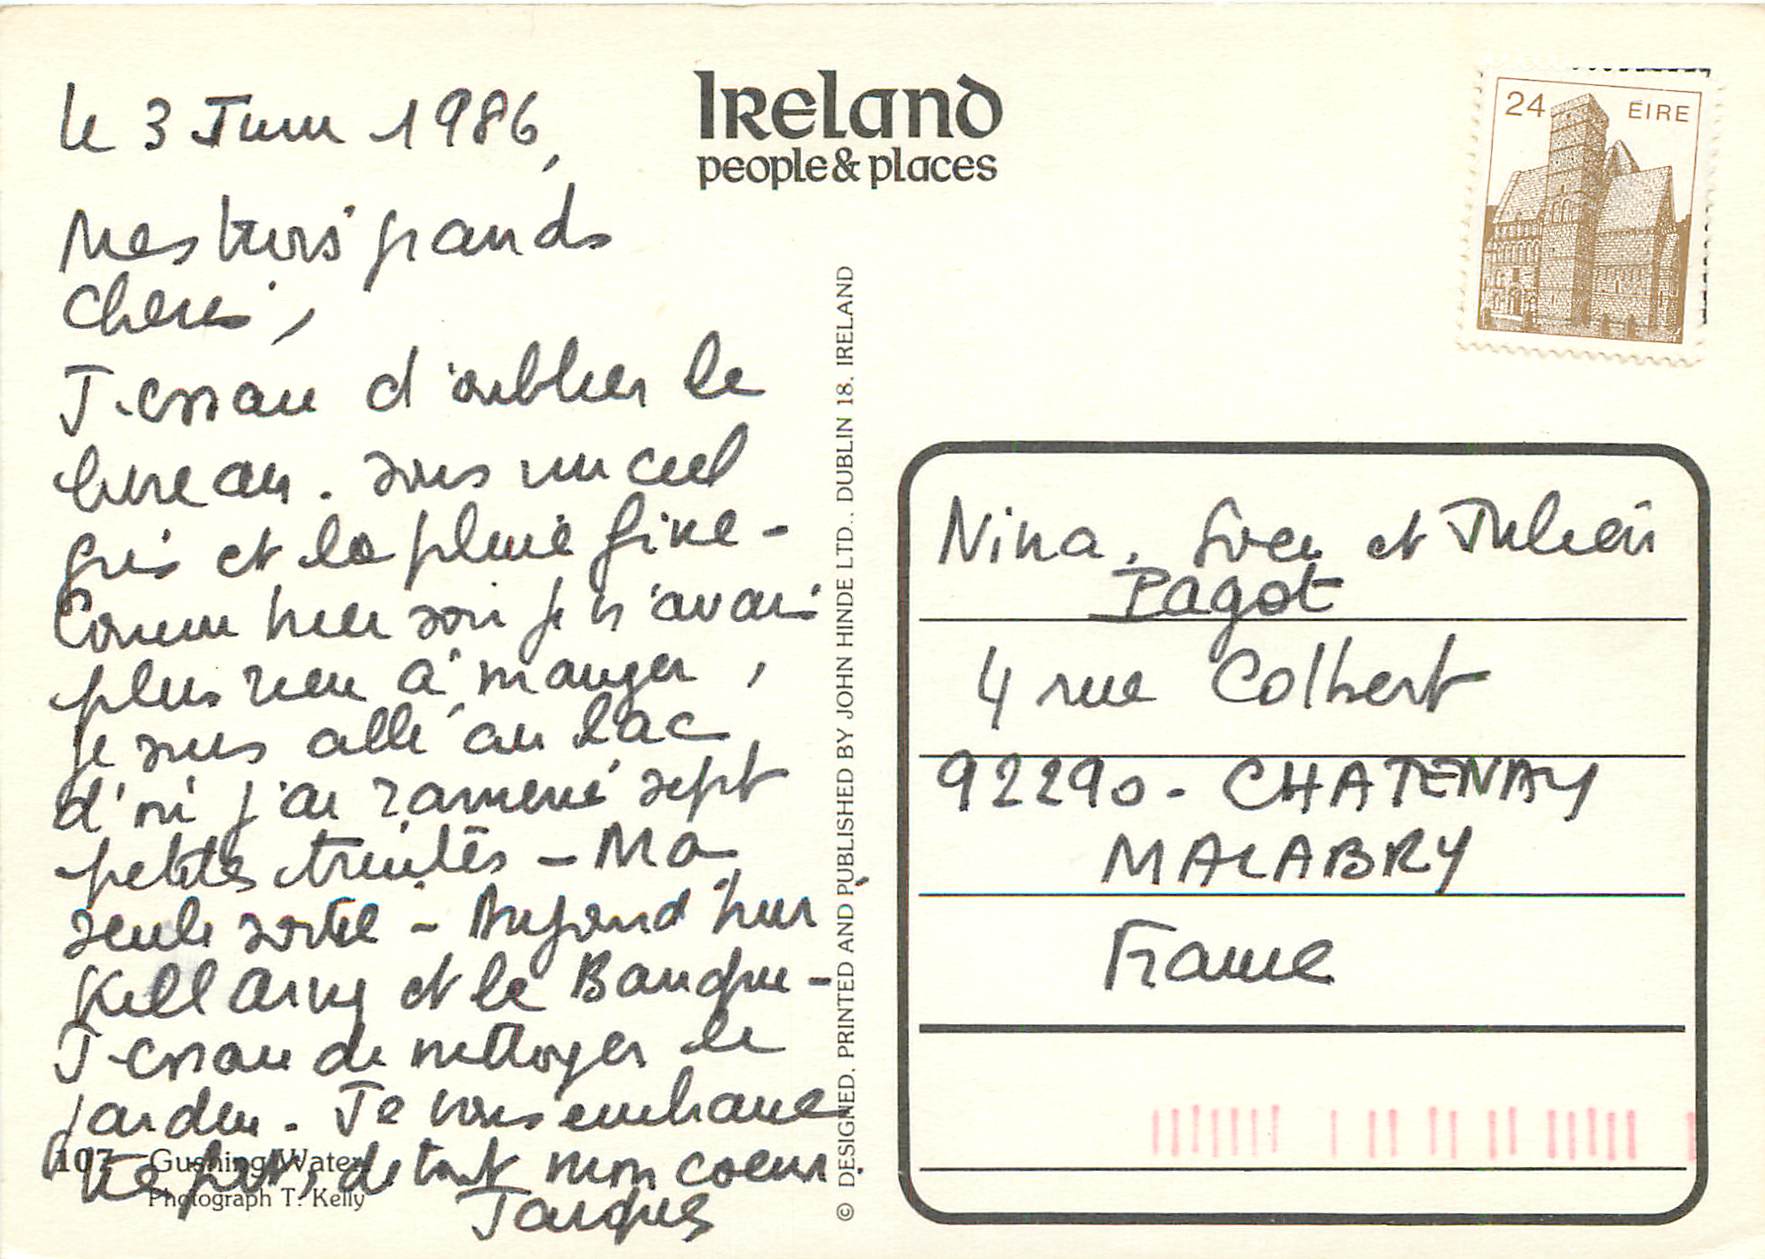 Ireland
people & places
24 EIRE
le 3 Juin 1986,
Mes trois grands
cheris,
J'essaie d'oublier le
bureau. sous un ciel
gris et la pluie fine -
Comme hier soir je n'avais
plus rien à manger,
je suis allé au lac
d'où j'ai ramené sept
petites truites - Ma
seule sortie - Aujourd'hui
Killarny et la Banque -
J'essaie de nettoyer le
jardin. Je vous embrasse
très fort, de tout mon coeur.
Jacques
107 Gushing Water
Photograph T. Kelly
© DESIGNED, PRINTED AND PUBLISHED BY JOHN HINDE LTD., DUBLIN 18, IRELAND
Nina, Sven et Julien
Pagot
4 rue Colbert
92290 - CHATENAY
MALABRY
France